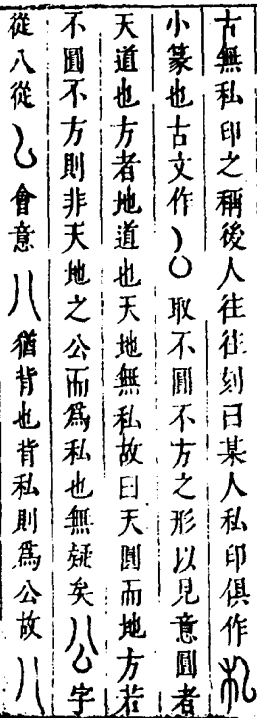 古無私印之稱後人往往刻曰某人私印俱作
小篆也古文作取不圓不方之形以見意圓者
天道也方者地道也天地無私故曰天圓而地方若
不圓不方則非天地之公而爲私也無疑矣公字
從八從會意八猶背也背私則爲公故八